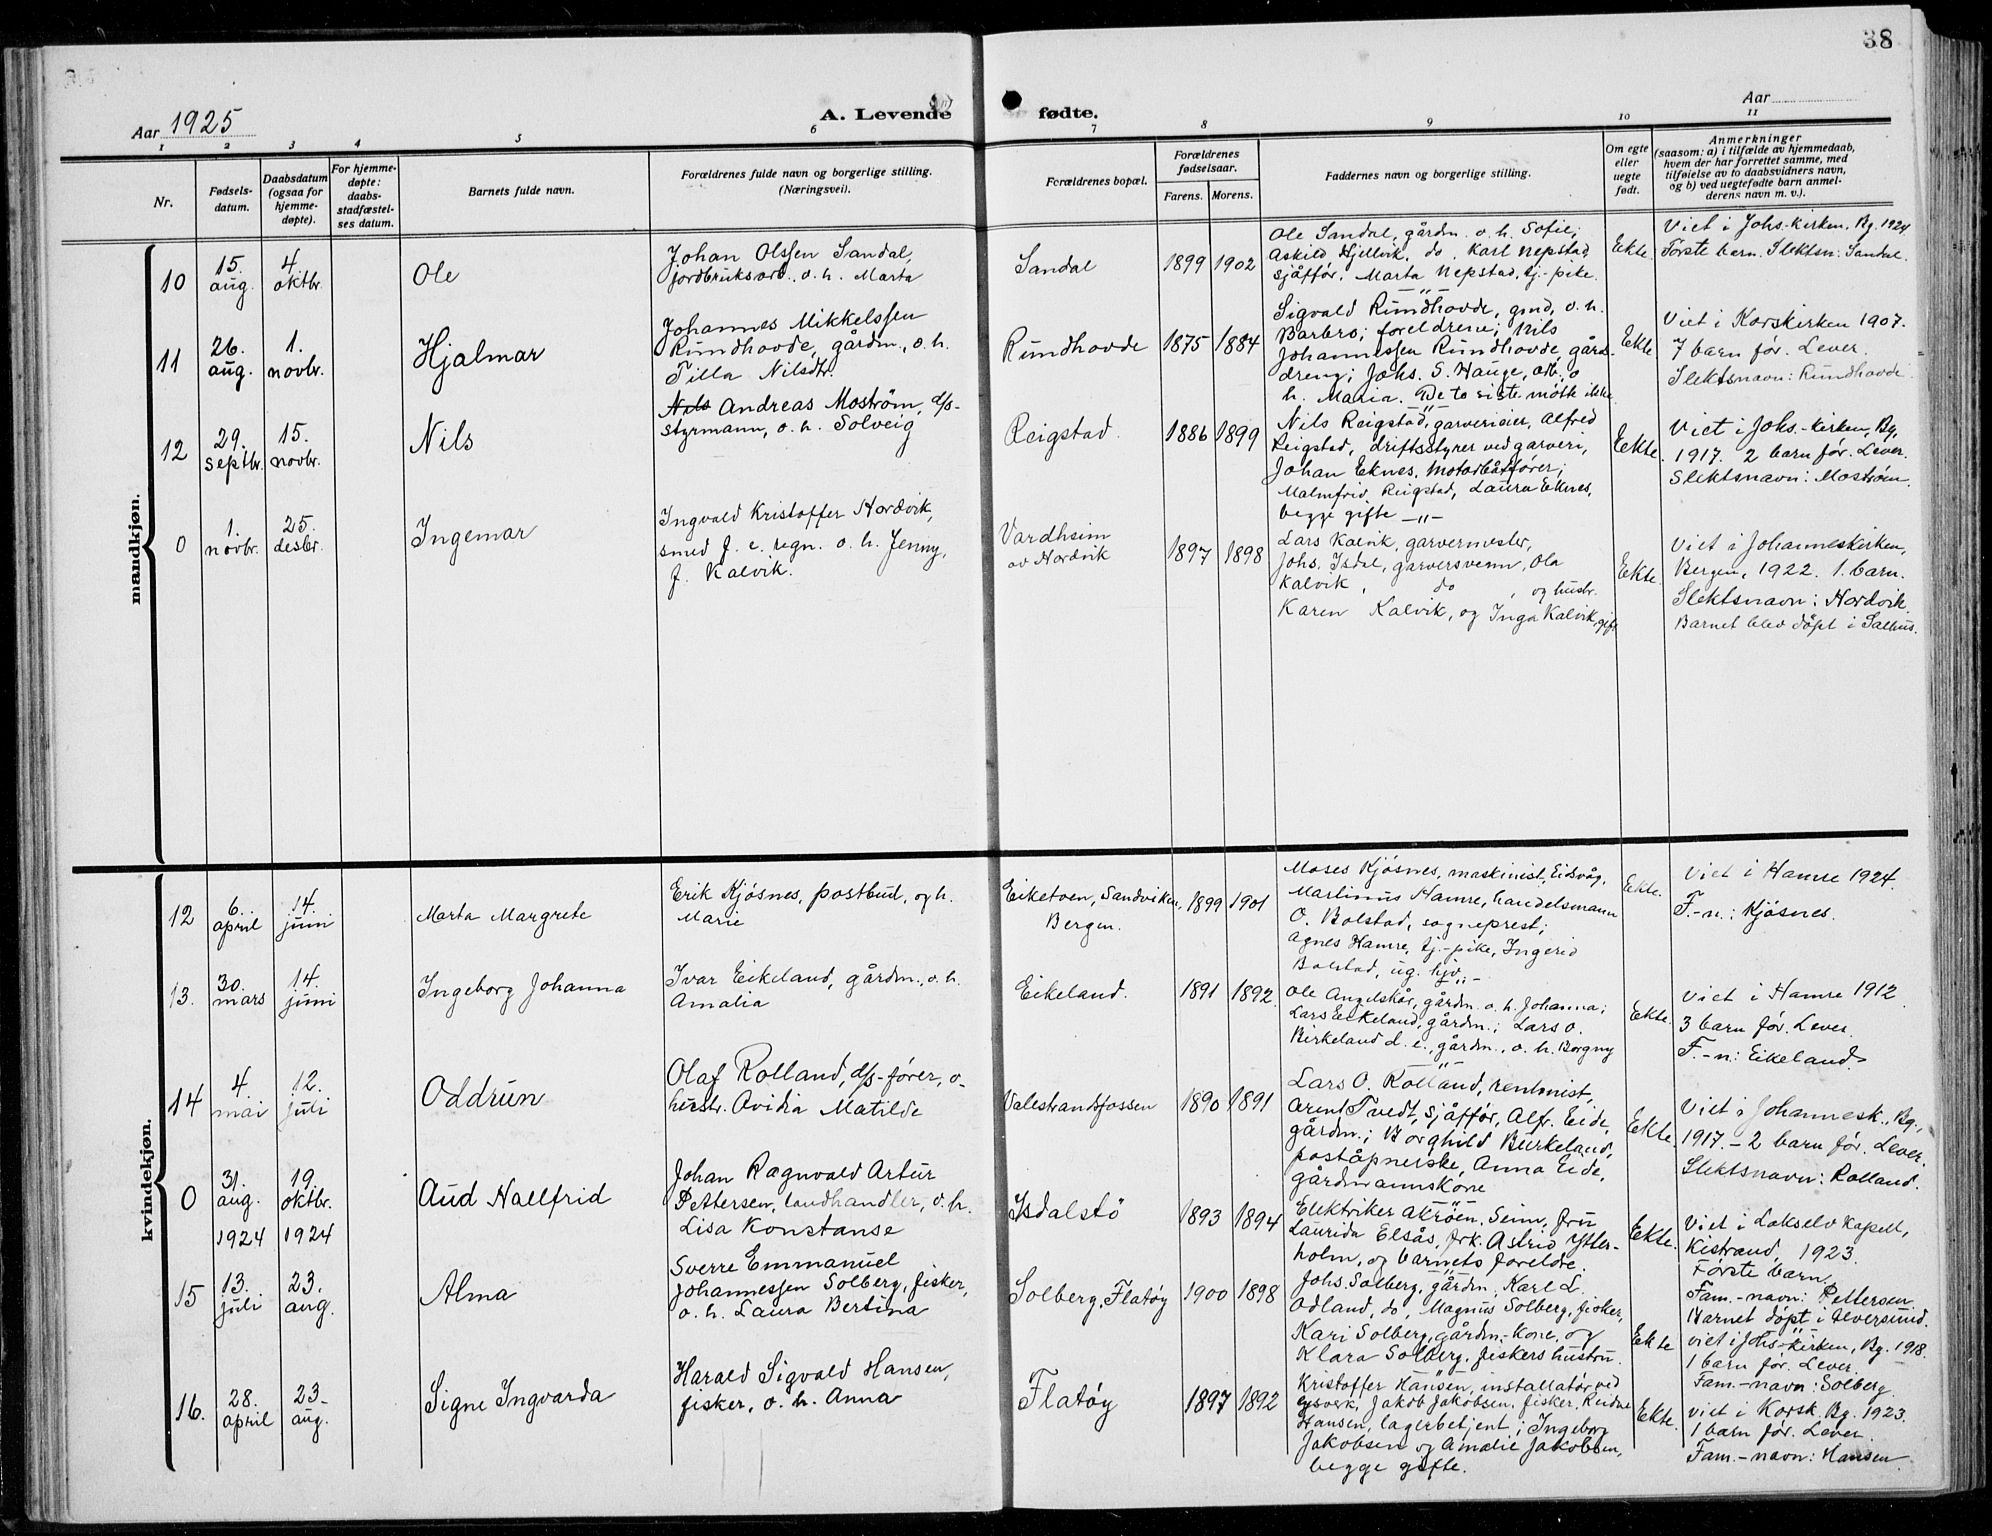 38
Aar 1925
A. Levende fødte.
Aar
1 2 3 4 5 6 7 8 9 10 11
Nr.
Fødsels-
datum.
Daabsdatum
(ogsaa for
hjemme-
døpte).
For hjemme-
døpte:
daabs-
stadfæstel-
ses datum.
Barnets fulde navn.
Forældrenes fulde navn og borgerlige stilling.
(Næringsvei).
Forældrenes bopæl.
Forældrenes
fødselsaar.
Farens. Morens.
Faddernes navn og borgerlige stilling.
Om egte
eller
uegte
født.
Anmerkninger
(saasom: a) i tilfælde av hjemmedaab,
hvem der har forrettet samme, med
tilføielse av to daabsvidners navn,
og b) ved uegtefødte barn anmel-
derens navn m. v.).
mandkjøn.
10
15.
aug.
4.
oktbr.
Ole
Johan Olssen Sandal,
jordbruksarb., o. h. Marta
Sandal
1899 1902
Ole Sandal, gårdm. o. h. Sofie;
Askild Hjellvik, do. Karl Nepstad,
sjåffør, Marta Nepstad, tj.-pike.
Ekte.
Viet i Johs.-kirken, Bg. 1924
Første barn. Slektsn: Sandal.
11
26.
aug.
1.
novbr.
Hjalmar
Johannes Mikkelssen
Rundhovde, gårdm., o. h.
Tilla Nilsdtr.
Rundhovde
1875 1884
Sigvald Rundhovde, gmd, o. h.
Barbro; foreldrene; Nils
Johannessen Rundhovde, gårds-
dreng; Johs. S. Hauge, arb. o
h. Maria. De to siste møtte ikke
Ekte
Viet i Korskirken 1907.
7 barn før. Lever.
Slektsnavn: Rundhovde.
12
29.
septbr.
15.
novbr.
Nils
Nils Andreas Moström, d/s-
styrmann, o. h. Solveig
Reigstad.
1886 1899
Nils Reigstad, garverieier, Alfred
Reigstad, driftsstyrer ved garveri,
Johan Eknes, motorbåtfører;
Malmfrid Reigstad, Laura Eknes,
begge gifte —„—
Ekte.
Viet i Johs.-kirken, Bg,
1917. 2 barn før. Lever.
Slektsnavn: Moström.
0
1.
novbr.
25.
desbr.
Ingemar
Ingvald Kristoffer Nordvik,
smed f. e. regn. o. h. Jenny,
f. Kalvik.
Vardheim
av Nordvik
1897 1898
Lars Kalvik, garvermester,
Johs. Isdal, garversvenn, Ola
Kalvik, do, og hustr.
Karen Kalvik, og Inga Kalvik, gift
Ekte.
Viet i Johanneskirken,
Bergen, 1922. 1. barn.
Slektsnavn: Nordvik.
Barnet blev døpt i Salhus.
kvindekjøn.
12
6.
april
14.
juni
Marta Margrete
Erik Kjøsnes, postbud, og h.
Marie
Eiketoen, Sandviken,
Bergen.
1899 1901
Moses Kjøsnes, maskinist, Eidsvåg,
Martinus Hamre, handelsmann
O. Bolstad, sogneprest;
Agnes Hamre, tj.-pike, Ingerid
Bolstad, ug. hjv.
Ekte.
Viet i Hamre 1924.
F.-n.: Kjøsnes.
13.
30.
mars
14.
juni
Ingeborg Johanna
Ivar Eikeland, gårdm., o. h.
Amalia
Eikeland.
1891 1892.
Ole Angelskår, gårdm. o. h. Johanna;
Lars Eikeland, gårdm.; Lars O.
Birkeland d. e., gårdm., o. h. Borgny
Ekte.
Viet i Hamre 1912
3 barn før. Lever.
F.-n: Eikeland
14
4.
mai
12.
juli
Oddrun
Olaf Rolland, d/s-fører, o-
hustr. Ovidia Matilde
Valestrandsfossen
1890 1891
Lars O. Rolland, rentenist,
Arent Tvedt, sjåffør, Alfr. Eide,
gårdm.; Borghild Birkeland,
poståpnerske, Anna Eide,
gårdmannskone
Ekte.
Viet i Johannesk., Bg.,
1917 – 2 barn før. Lever.
Slektsnavn: Rolland.
0
31.
aug.
1924
19.
oktbr.
1924
Aud Hallfrid
Johan Ragnvald Artur
Pettersen, landhandler, o. h.
Lisa Konstanse
Isdalstø
1893 1894
Elektriker Akrøen, Seim, fru
Laurida Elsås, frk. Astrid Ytter-
holm, og barnets foreldre.
Ekte.
Viet i Lakselv Kapell,
Kistrand, 1923.
Første barn.
Fam.-navn: Pettersen
Barnet døpt i Alversund.
15
13.
juli
23.
aug.
Alma
Sverre Emmanuel
Johannessen Solberg, fisker,
o. h. Laura Bertina
Solberg, Flatøy
1900 1898
Johs. Solberg, gårdm, Karl L.
Odland, do, Magnus Solberg, fisker,
Kari Solberg, gårdm.-kone, og
Klara Solberg, fiskers hustru.
Ekte
viet i Johs-kirken, Bg. 1918.
1 barn før. Lever.
Fam.-navn: Solberg.
16.
28.
april
23.
aug.
Signe Ingvarda
Harald Sigvald Hansen,
fisker, o. h. Anna
Flatøy
1897 1892
Kristoffer Hansen, installatør ved
lysverk, Jakob Jakobsen, fisker, Reidar
Hansen, lagerbetjent; Ingeborg
Jakobsen og Amalie Jakobsen,
begge gifte.
Ekte.
viet i Korsk. Bg. 1923.
1 barn før. Lever.
Fam.-navn: Hansen